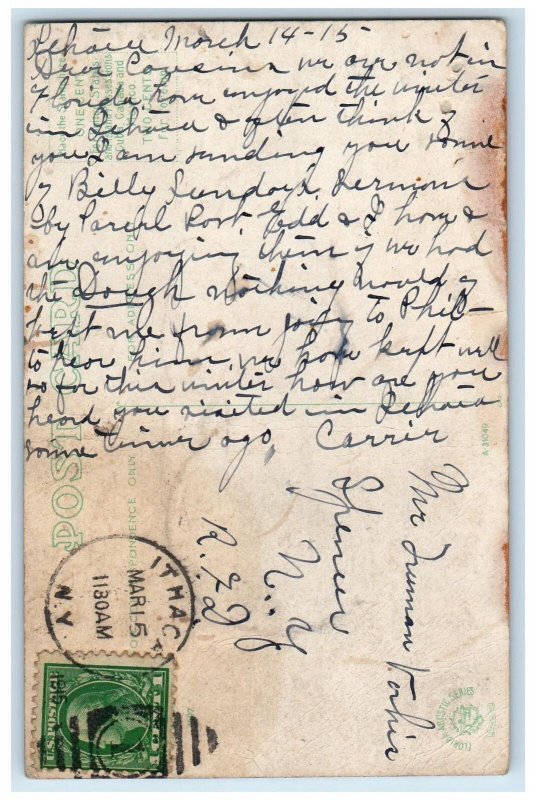 Ithaca March 14-15
Dear Cousins we are not in
Florida Dom enjoyed the winter
in Ithaca & often think of
you I am sending you some
of Billy Sundays Sermons
by Parcel Post, Tedd & I have &
are enjoying them if we had
the Dough nothing would of
kept me from going to Phil-
to hear him, we have kept well
so for this winter how are you
heard you visited in Ithaca
some time ago, Carrier
Mr Truman Vorhis
Spencer
N. Y
R. F. D
POST CARD
CORRESPONDENCE ONLY
ONE CENT
TWO CENTS
A-31049
FLORIDA ARTISTIC SERIES
ITHACA
MAR 15
1130 AM
N.Y.
U.S. POSTAGE